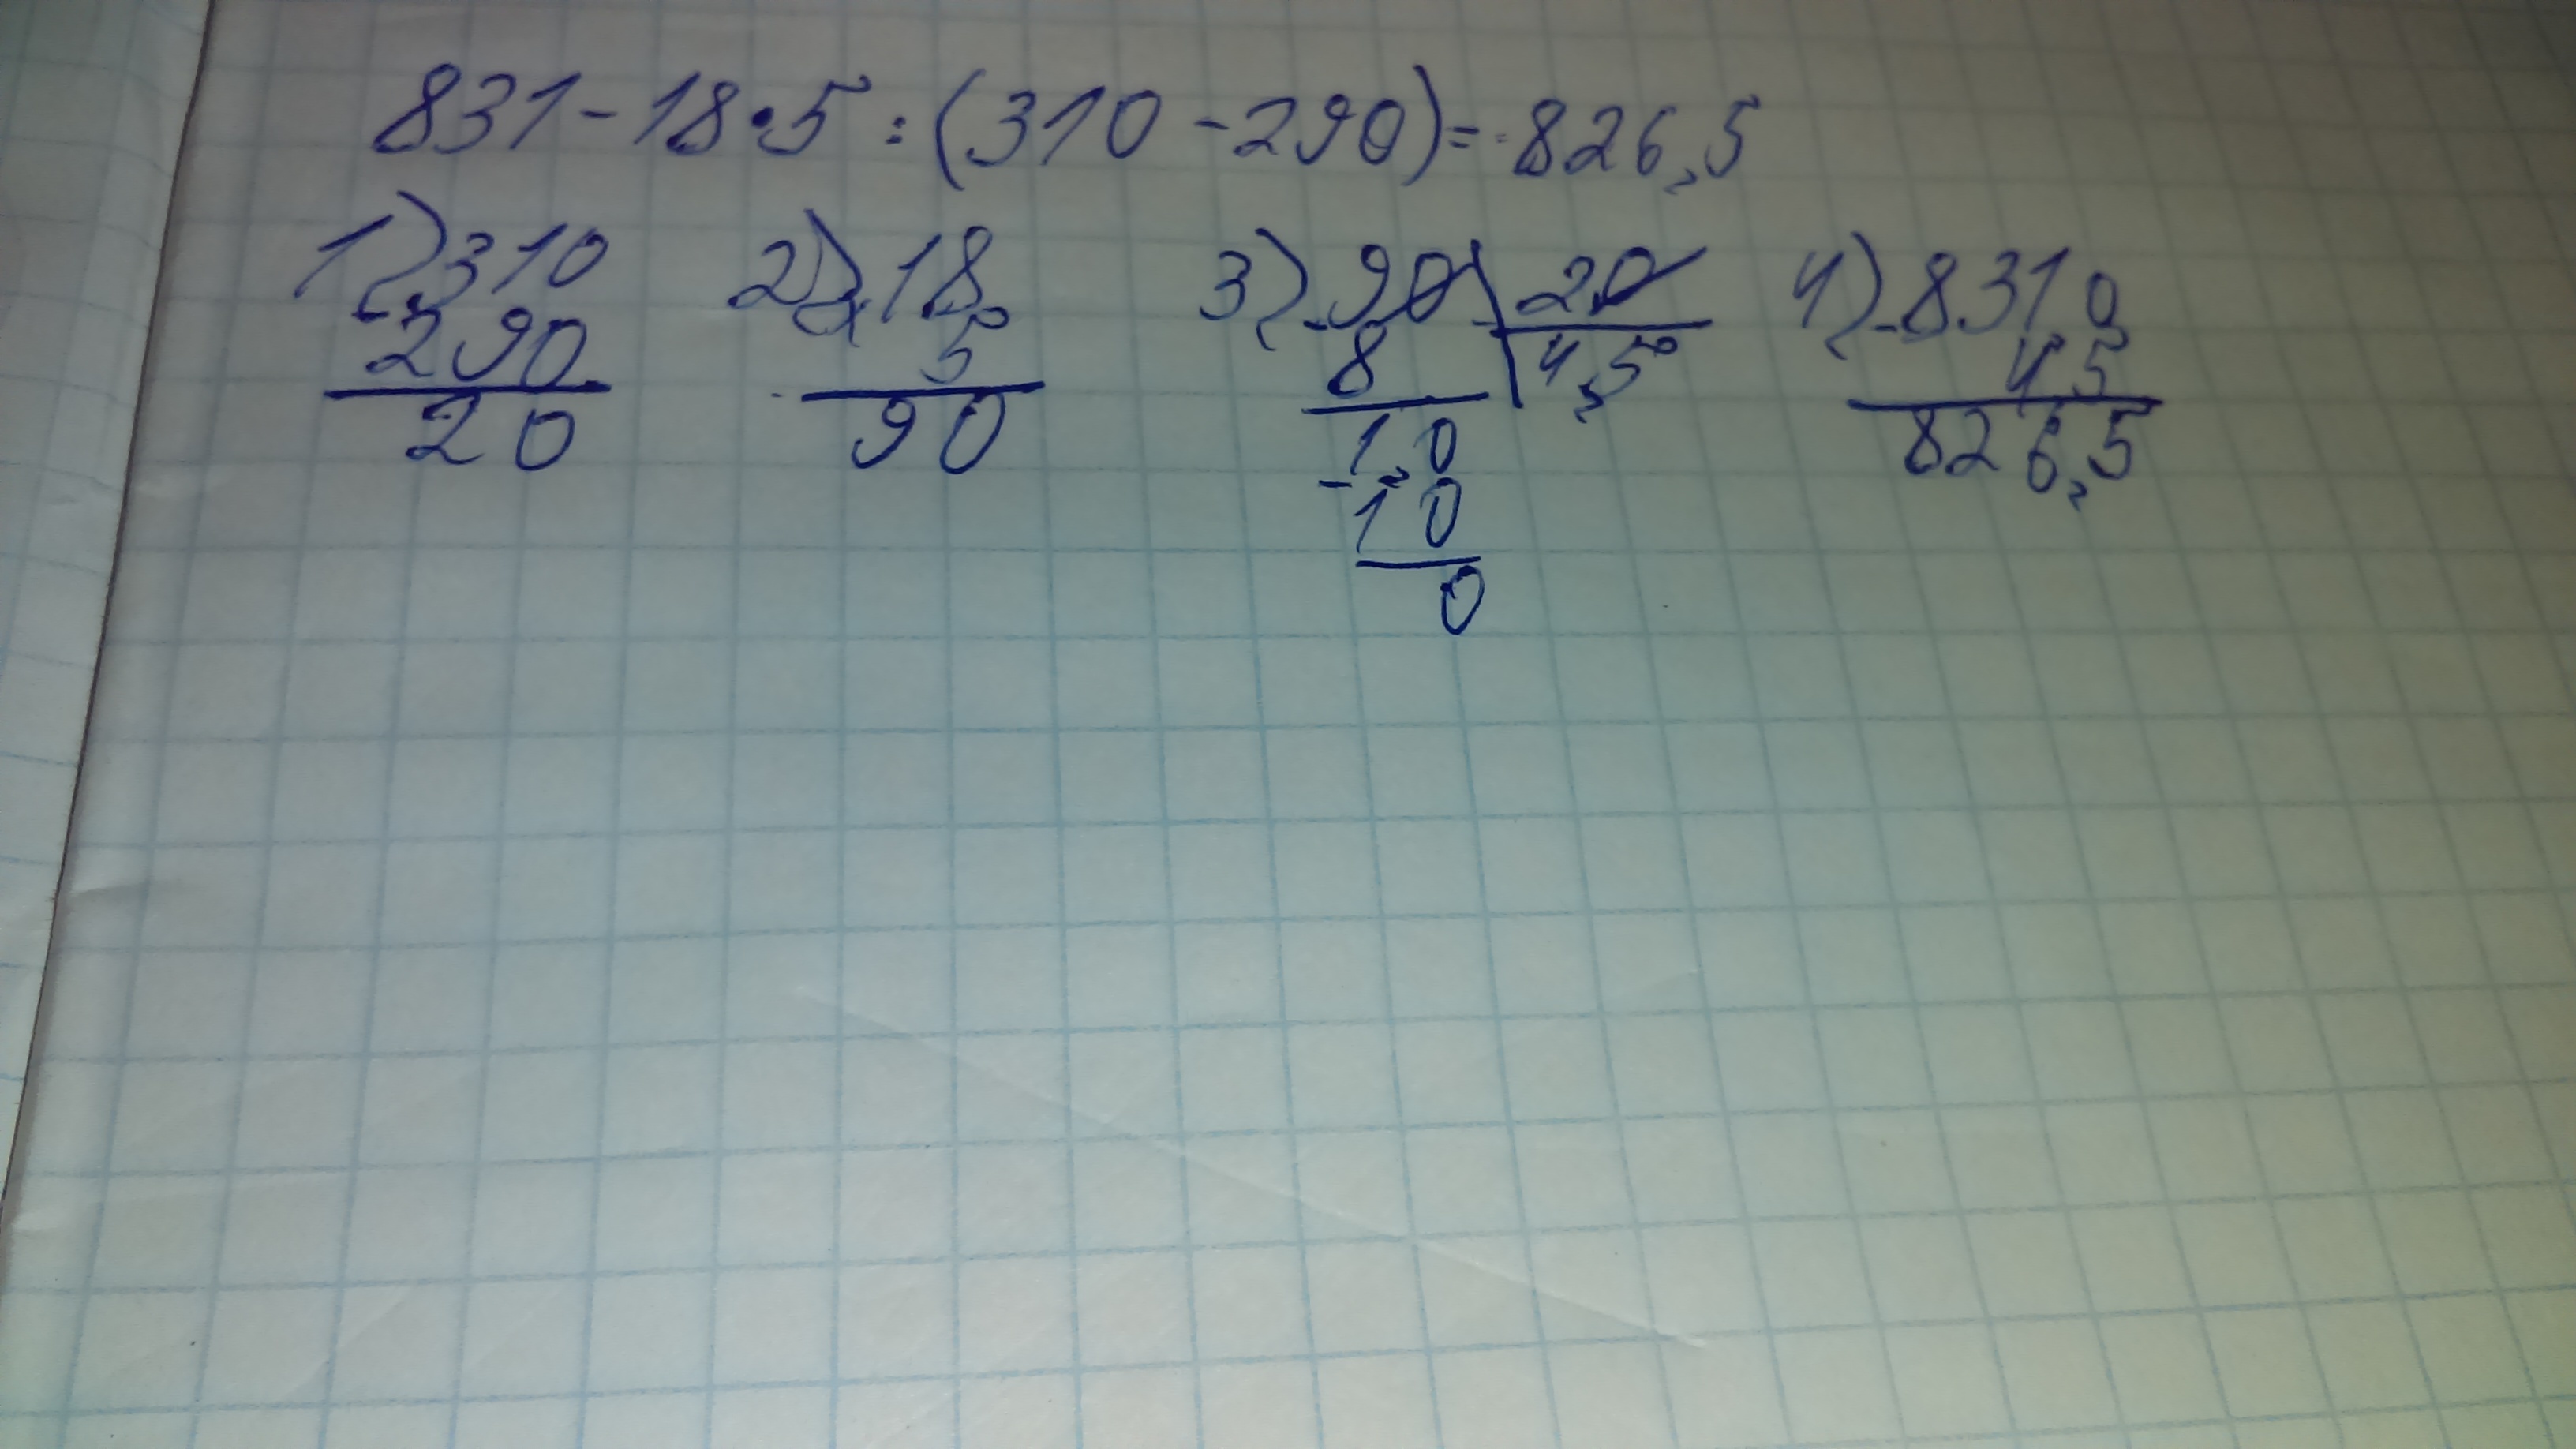 831-18·5:(310-290)=826,5
1) 310 2) 18 3) -90 20 4) -8310
-290 x 5 8 4,5 4 5
20 90 10 826,5
-10
0